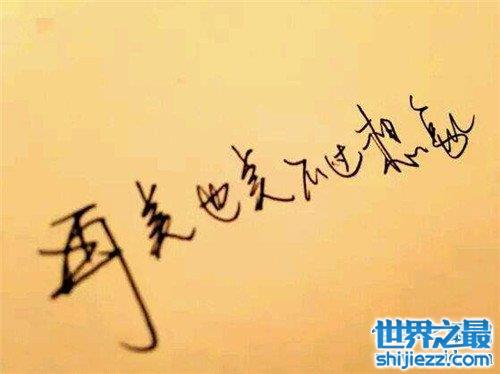 再美也美不过想象
世界之最
shijiezzi.com